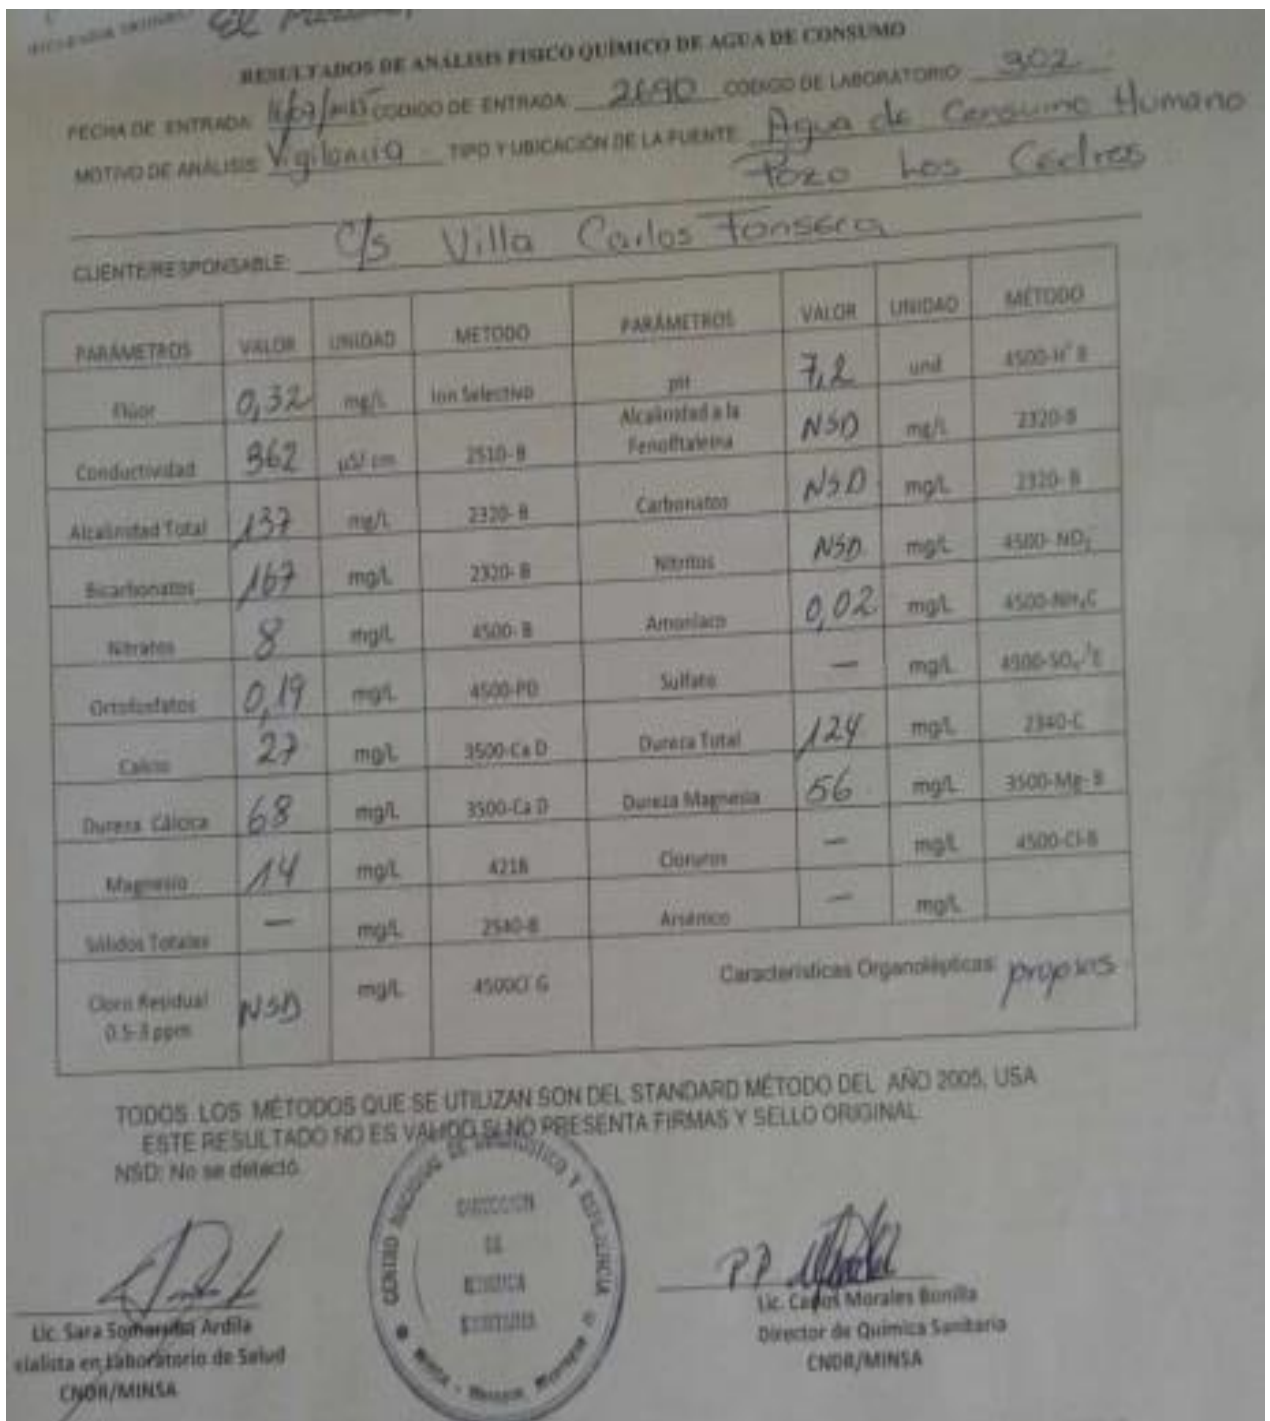 El
RESULTADOS DE ANÁLISIS FISICO QUÍMICO DE AGUA DE CONSUMO
FECHA DE ENTRADA: CODIGO DE ENTRADA: 2690 CODIGO DE LABORATORIO: 902
MOTIVO DE ANÁLISIS: Vigilancia TIPO Y UBICACIÓN DE LA FUENTE: Agua de Consumo Humano
Pozo Los Cedros
CLIENTE/RESPONSABLE: C/S Villa Carlos Fonseca
PARÁMETROS VALOR UNIDAD METODO PARÁMETROS VALOR UNIDAD MÉTODO
Flúor 0,32 mg/L Ion Selectivo pH 7,2 und 4500-H+ B
Conductividad 362 µS/cm 2510-B Alcalinidad a la Fenolftaleina NSD mg/L 2320-B
Alcalinidad Total 137 mg/L 2320-B Carbonatos NSD mg/L 2320-B
Bicarbonatos 167 mg/L 2320-B Nitritos NSD mg/L 4500-NO2-
Nitratos 8 mg/L 4500-B Amoníaco 0,02 mg/L 4500-NH3C
Ortofosfatos 0,19 mg/L 4500-PD Sulfato — mg/L
Calcio 27 mg/L 3500-Ca D Dureza Total 124 mg/L 2340-C
Dureza Cálcica 68 mg/L 3500-Ca D Dureza Magnesia 56 mg/L 3500-Mg-B
Magnesio 14 mg/L 421B Cloruros — mg/L 4500-Cl-B
Sólidos Totales — mg/L 2540-B Arsénico — mg/L
Cloro Residual 0.5-3 ppm NSD mg/L 4500Cl G Características Organolépticas: propias
TODOS LOS MÉTODOS QUE SE UTILIZAN SON DEL STANDARD MÉTODO DEL AÑO 2005, USA
ESTE RESULTADO NO ES VALIDO SI NO PRESENTA FIRMAS Y SELLO ORIGINAL
NSD: No se detectó
CENTRO NACIONAL DE DIAGNOSTICO Y REFERENCIA
DIRECCION
DE
QUIMICA
SANITARIA
P.P
Lic. Sara Ardila
cialista en Laboratorio de Salud
CNDR/MINSA
Lic. Carlos Morales Bonilla
Director de Química Sanitaria
CNDR/MINSA